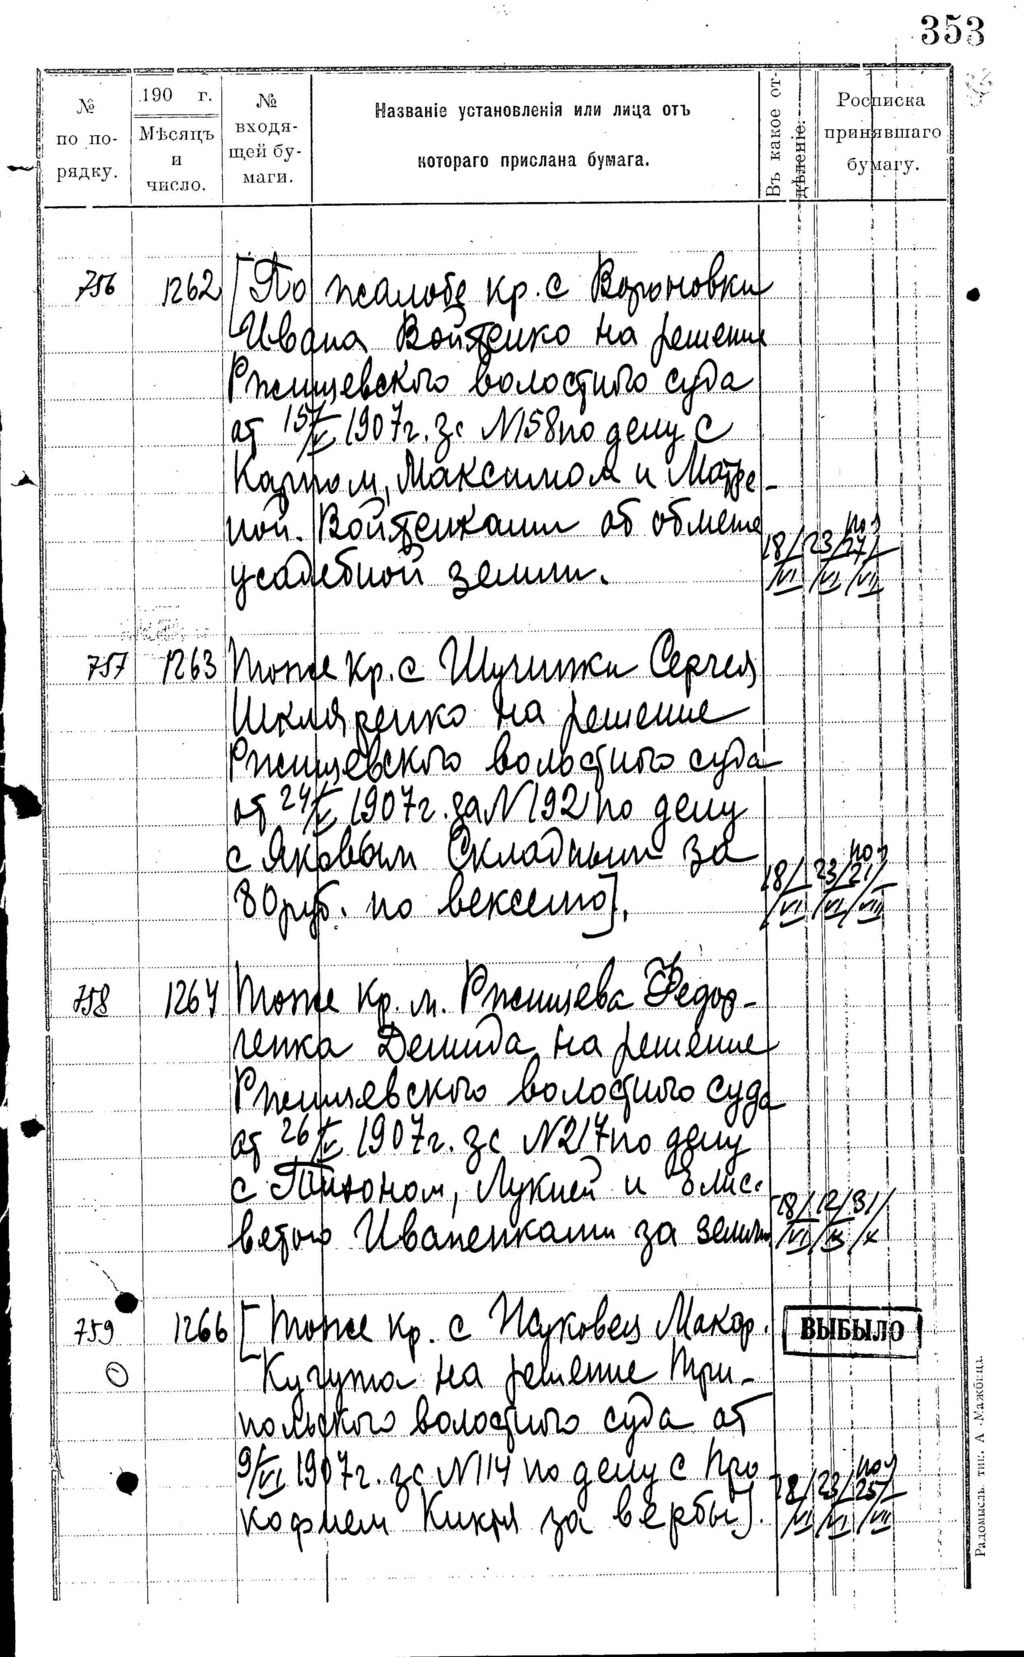 353
№ по порядку.
190 г. Мѣсяцъ и число.
№ входящей бумаги.
Названіе установленія или лица отъ котораго прислана бумага.
Въ какое отдѣленіе.
Росписка принявшаго бумагу.
756 1262 [По жалобе кр. с Вороновки
Ивана Войтенко на решение
Ржищевского волостного суда
от 15/V 1907г. за N158 по делу с
Карпом, Максимом и Матре-
ной Войтенками об обмене
усадебной земли. 18/VI 23/VI 27/VII
757 1263 Тоже кр. с Щучинки Сергея
Шкляренко на решение
Ржищевского волостного суда
от 24/V 1907г. за N192 по делу
с Яковом Складным за
80 руб. по векселю]. 18/VI 23/VI 21/VII
758 1264 Тоже кр. м. Ржищева Федор-
ченка Демида на решение
Ржищевского волостного суда
от 26/V 1907г. за N217 по делу
с Тихоном, Лукией и Елиса
ветою Иваненками за землю 18/VI 12/IX 31/X
759 1266 [Тоже кр. с Жуковец Макар.
Кучума на решение Три-
польского волостного суда от
9/VI 1907г. за N114 по делу с Про
кофием Кикня за вербы]. 18/VI 23/VI 25/VII
ВЫБЫЛО
Радомысль. тип. А. Мажбица.